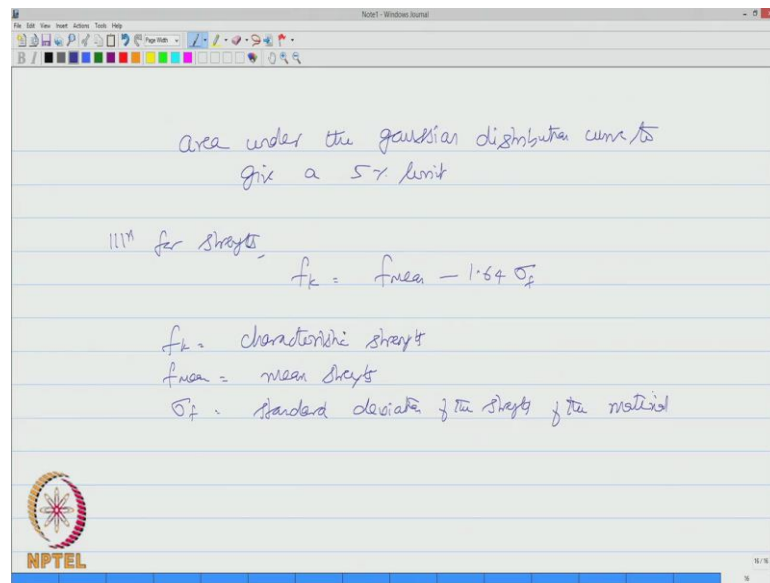 Note1 - Windows Journal
File Edit View Insert Actions Tools Help
Page Width
B I
area under the gaussian distribution curve to
give a 5% limit
lllly for strength,
fk = fmean – 1.64 σf
fk = characteristic strength
fmean = mean strength
σf = standard deviation of the strength of the material
NPTEL
16/16
16